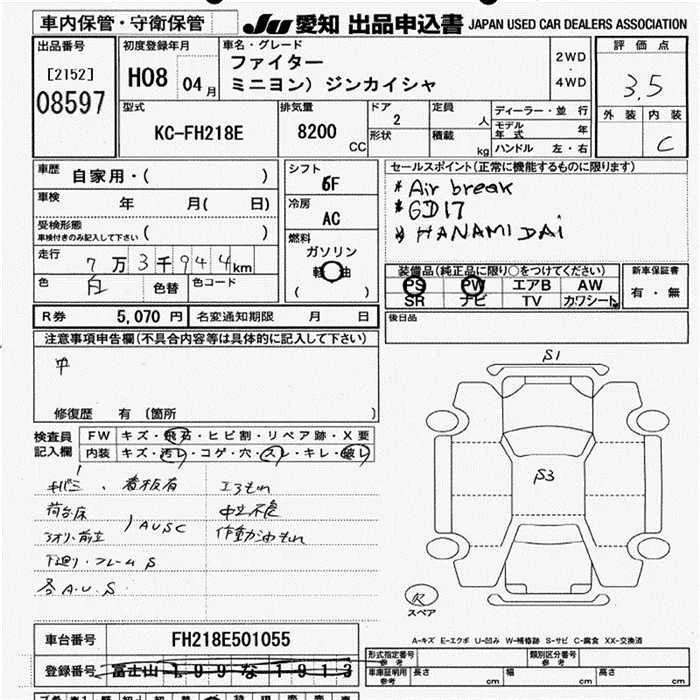 車内保管・守衛保管
JU 愛知 出品申込書 JAPAN USED CAR DEALERS ASSOCIATION
出品番号
[2152]
08597
初度登録年月
H08 04月
車名・グレード
ファイター
ミニヨン)ジンカイシャ
2WD
・
4WD
評価点
3.5
外装 内装
C
型式
KC-FH218E
排気量
8200
CC
ドア
2
形状
定員
人
積載
kg
ディーラー・並行
モデル
年式 年
ハンドル 左・右
車歴
自家用・( )
車検
年 月( 日)
受検形態
車検付きのみ記入して下さい ( )
走行
7万3千944km
色
白
色替
色コード
シフト
6F
冷房
AC
燃料
ガソリン
軽油
( )
セールスポイント(正常に機能するものに限ります)
* Air break
* GD17
* HANAMI DAi
装備品(純正品に限り○をつけてください)
PS PW エアB AW
SR ナビ TV カワシート
新車保証書
有・無
R券 5,070円 名変通知期限 月 日
後日品
注意事項申告欄(不具合内容等は具体的に記入して下さい)
修復歴 有 (箇所 )
検査員
記入欄
FW キズ・飛石・ヒビ割・リペア跡・X要
内装 キズ・汚レ・コゲ・穴・スレ・キレ・破レ
看板有
エアもれ
荷台床
AUSC
中立不良
アオリ・前立
作動油もれ
下廻り・フレームS
各A.U.S
S1
S3
R
スペア
A-キズ E-エクボ U-凹み W-補修跡 S-サビ C-腐食 XX-交換済
車台番号 FH218E501055
登録番号 富士山199な1913
形式指定番号
参考
類別区分番号
参考
車庫証明用
参考
長さ 幅 高さ
cm cm cm